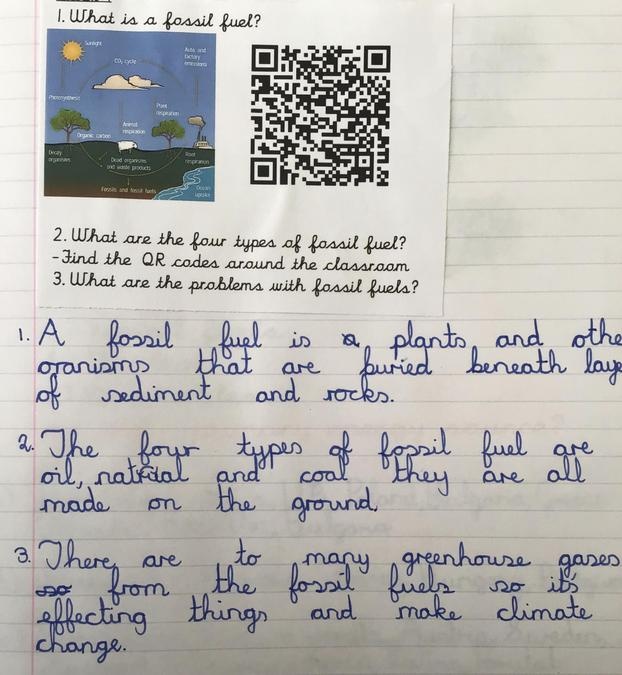 1. What is a fossil fuel?
Sunlight
CO₂ cycle
Auto and
factory
emissions
Photosynthesis
Plant
respiration
Animal
respiration
Organic carbon
Decay
organisms
Dead organisms
and waste products
Root
respiration
Fossils and fossil fuels
Ocean
uptake
2. What are the four types of fossil fuel?
-Find the QR codes around the classroom
3. What are the problems with fossil fuels?
1. A fossil fuel is a plants and othe
oranisms that are buried beneath laye
of sediment and rocks.
2. The four types of fossil fuel are
oil, and coal they are all
made on the ground
3. There are to many greenhouse gases
so from the fossil fuels so it's
effecting things and make climate
change.